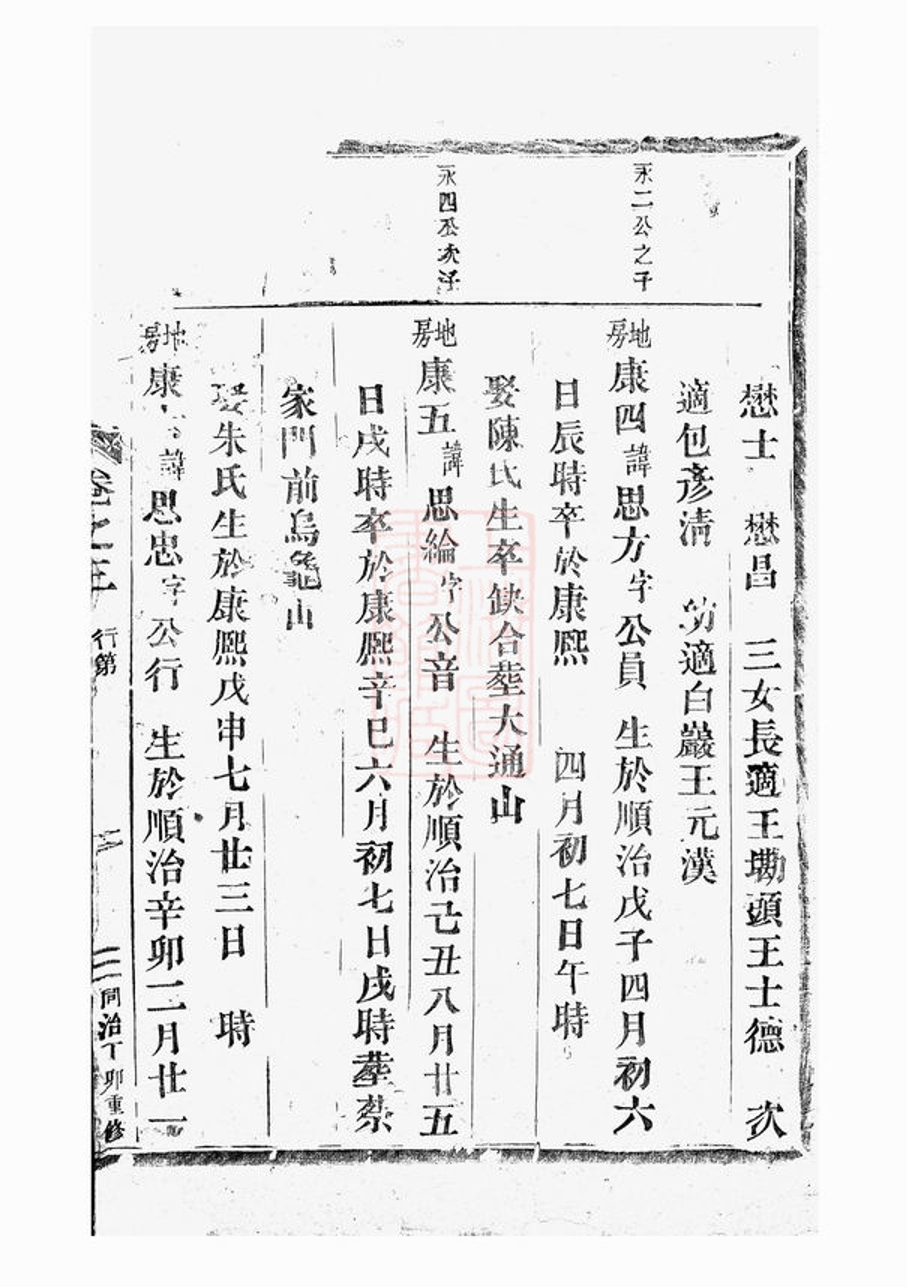 懋士 懋昌 三女長適王墈頭王士德 次
適包彥清 幼適白巖王元漢
永二公之子
地房康四諱思方字公員 生於順治戊子四月初六
日辰時卒於康熙 四月初七日午時
娶陳氏生卒缺合塟大通山
永四公次子
地房康五諱思綸字公音 生於順治己丑八月廿五
日戌時卒於康熙辛巳六月初七日戌時塟蔡
家門前烏龜山
娶朱氏生於康熙戊申七月廿三日 時
地房康 諱思忠字公行 生於順治辛卯二月廿一
卷之三 行第 同治丁卯重修